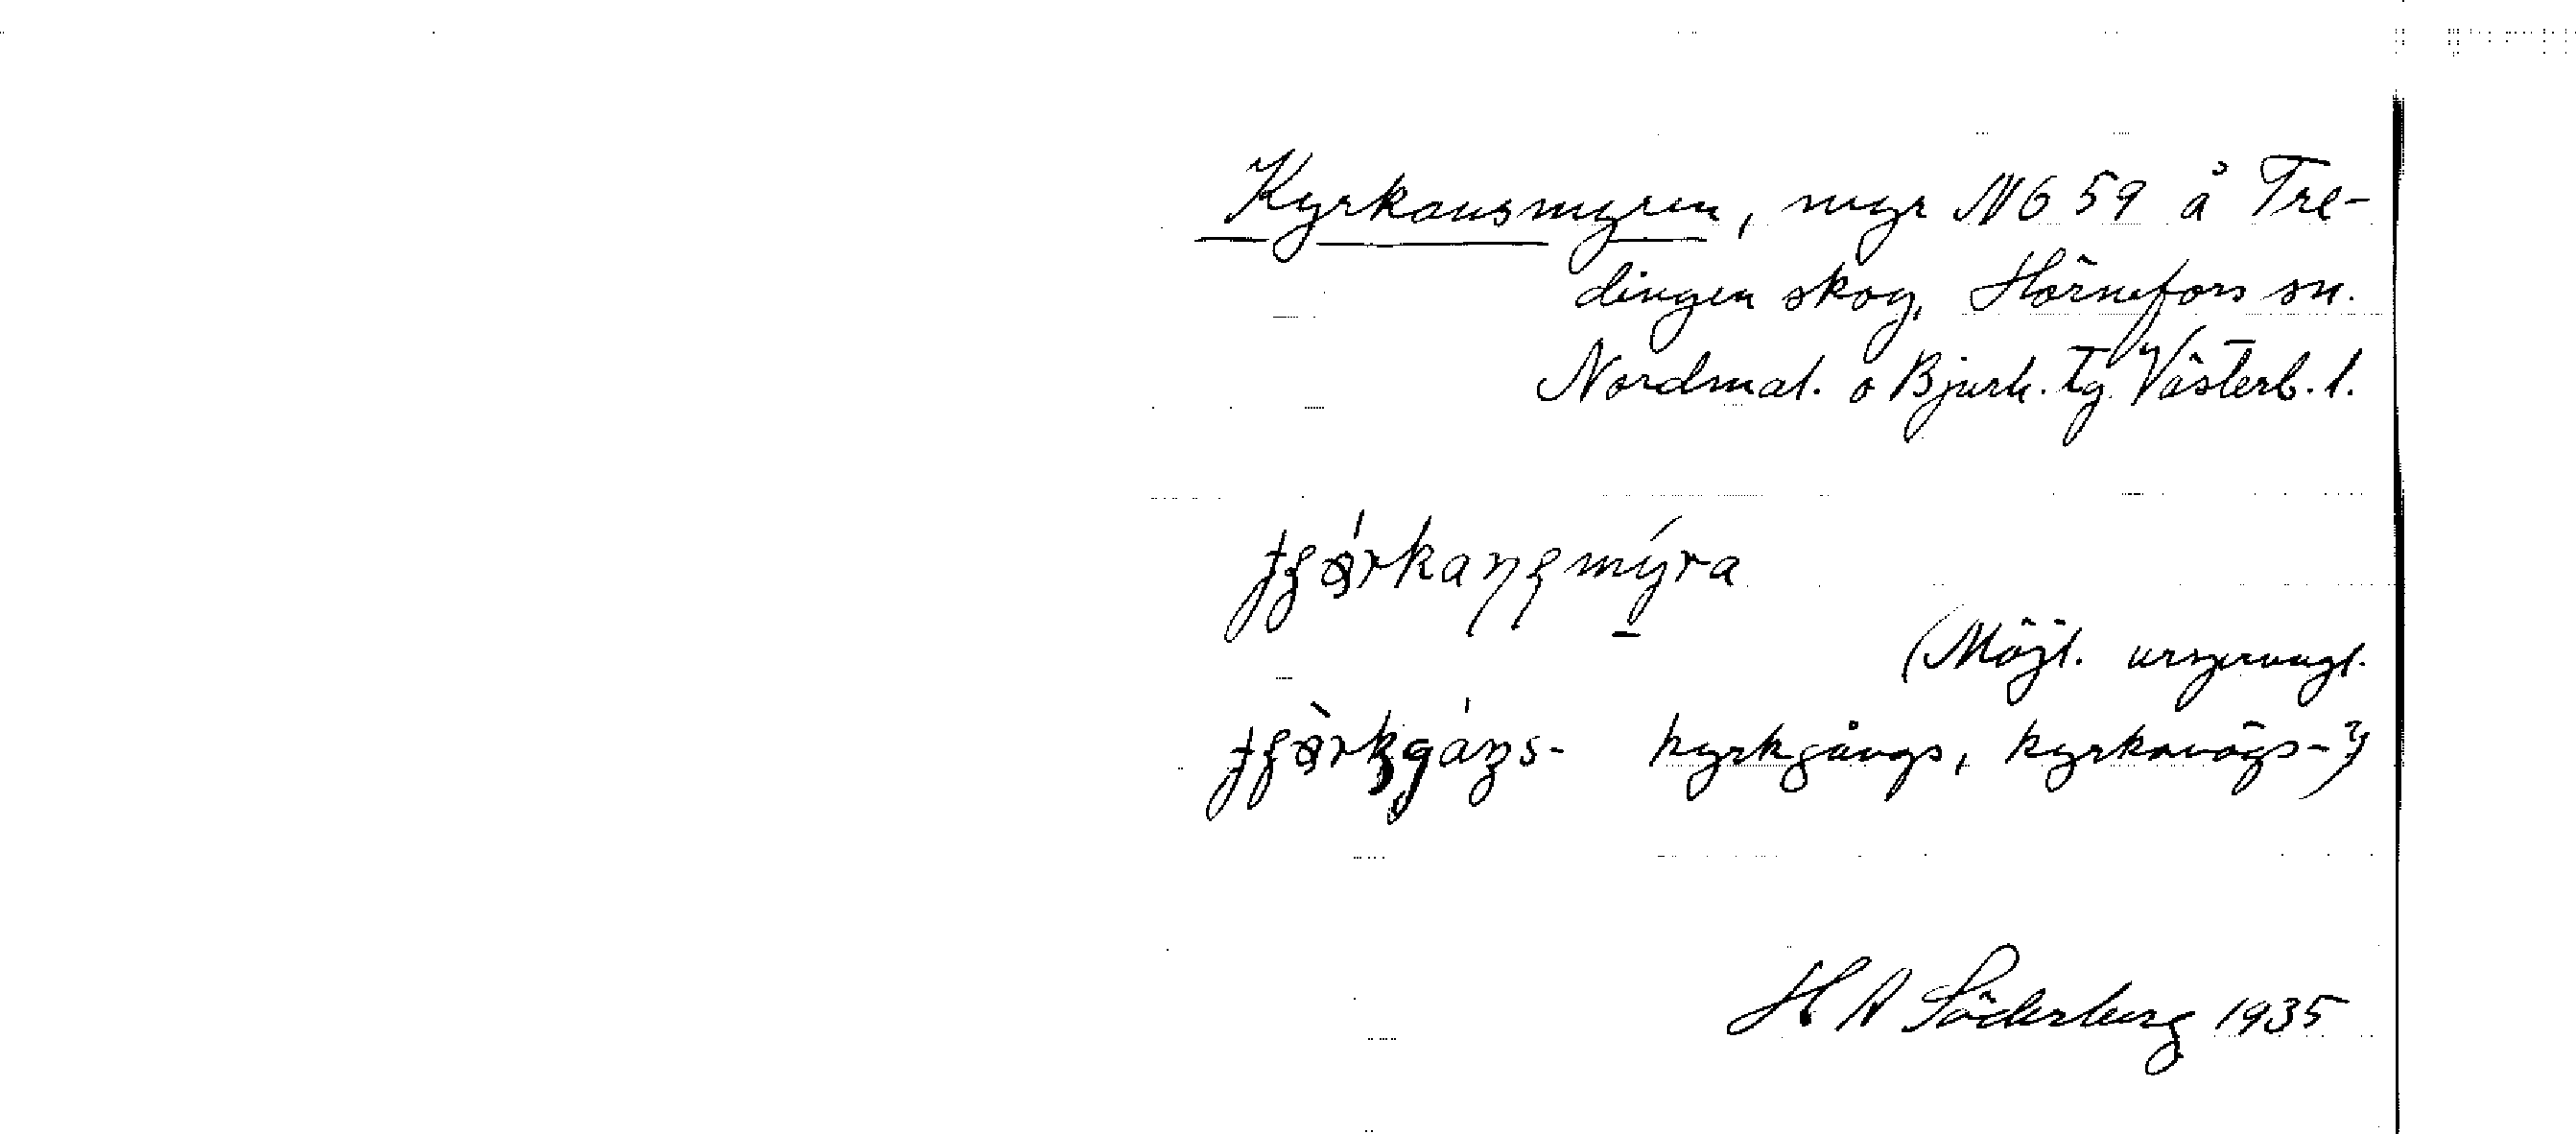 Kyrkansmyren, myr N 6 59 å Tre-
dingen skog, Hörnefors sn.
Nordmal. o Bjurh. tg. Västerb. l.
(Möjl. ursprungl.
kyrkgångs, kyrkovägs-?)
H A Söderberg 1935